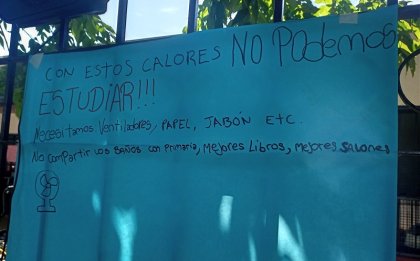 CON ESTOS CALORES NO PODEMOS
ESTUDIAR!!!
Necesitamos Ventiladores, PAPEL, JABÓN ETC.
No compartir los baños con primaria, Mejores Libros, Mejores SALONES